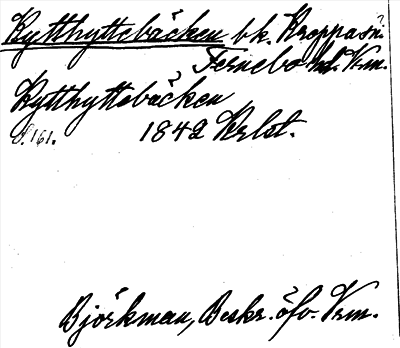 Kytthyttebäcken bk. Kroppa sn.
Fernebo hd. Vrm.
Kytthyttebäcken
S. 161. 1842 Krlst.
Björkman, Beskr. öfv. Vrm.